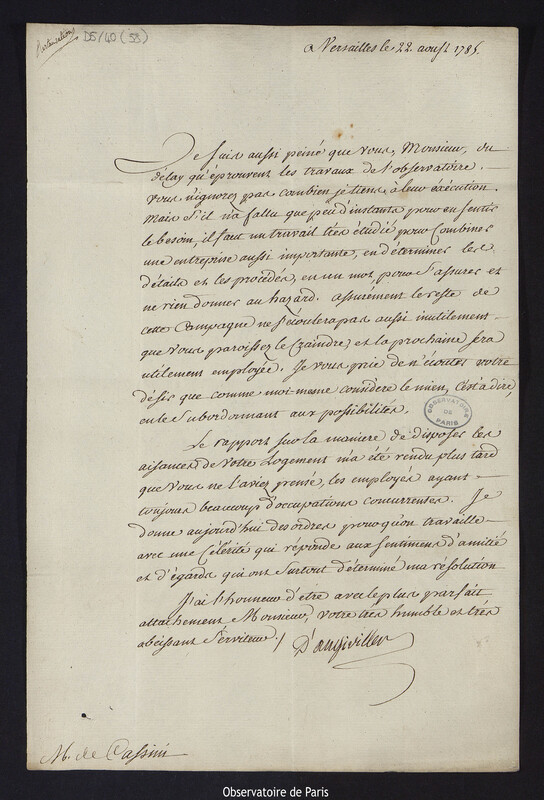 Restauration
D5/40 (53)
a Versailles le 22. aoust 1785.
Je suis aussi peiné que vous, Monsieur, du
délay qu'éprouvent les travaux de l'observatoire.
vous n'ignorez pas combien je tiens a leur exécution
mais s'il n'a fallu que peu d'instants pour en sentir
le besoin, il faut un travail très étudié pour combiner
une entreprise aussi importante, en déterminer les
détails et les procédés, en un mot, pour s'assurer et
ne rien donner au hazard. assurément le reste de
cette Campagne ne s'écoulera pas aussi inutilement
que vous paroissez le craindre, et la prochaine sera
utilement employée. Je vous prie de n'écouter votre
désir que comme moi-mesme considere le mien, c'est a dire,
en le subordonnant aux possibilités.
Le rapport sur la maniere de disposer les
aisances de votre Logement m'a été rendu plus tard
que vous ne l'aviez pensé, les employés ayant
toujours beaucoup d'occupations concurrentes. Je
donne aujourd'hui des ordres pour qu'on travaille
avec une célérité qui réponde aux sentimens d'amitié
et d'égards qui ont surtout déterminé ma résolution
J'ai l'honneur d'etre avec le plus parfait
attachement Monsieur, votre très humble et très
obéissant serviteur./. D'angiviller
M. de Cassini
OBSERVATOIRE DE PARIS
Observatoire de Paris